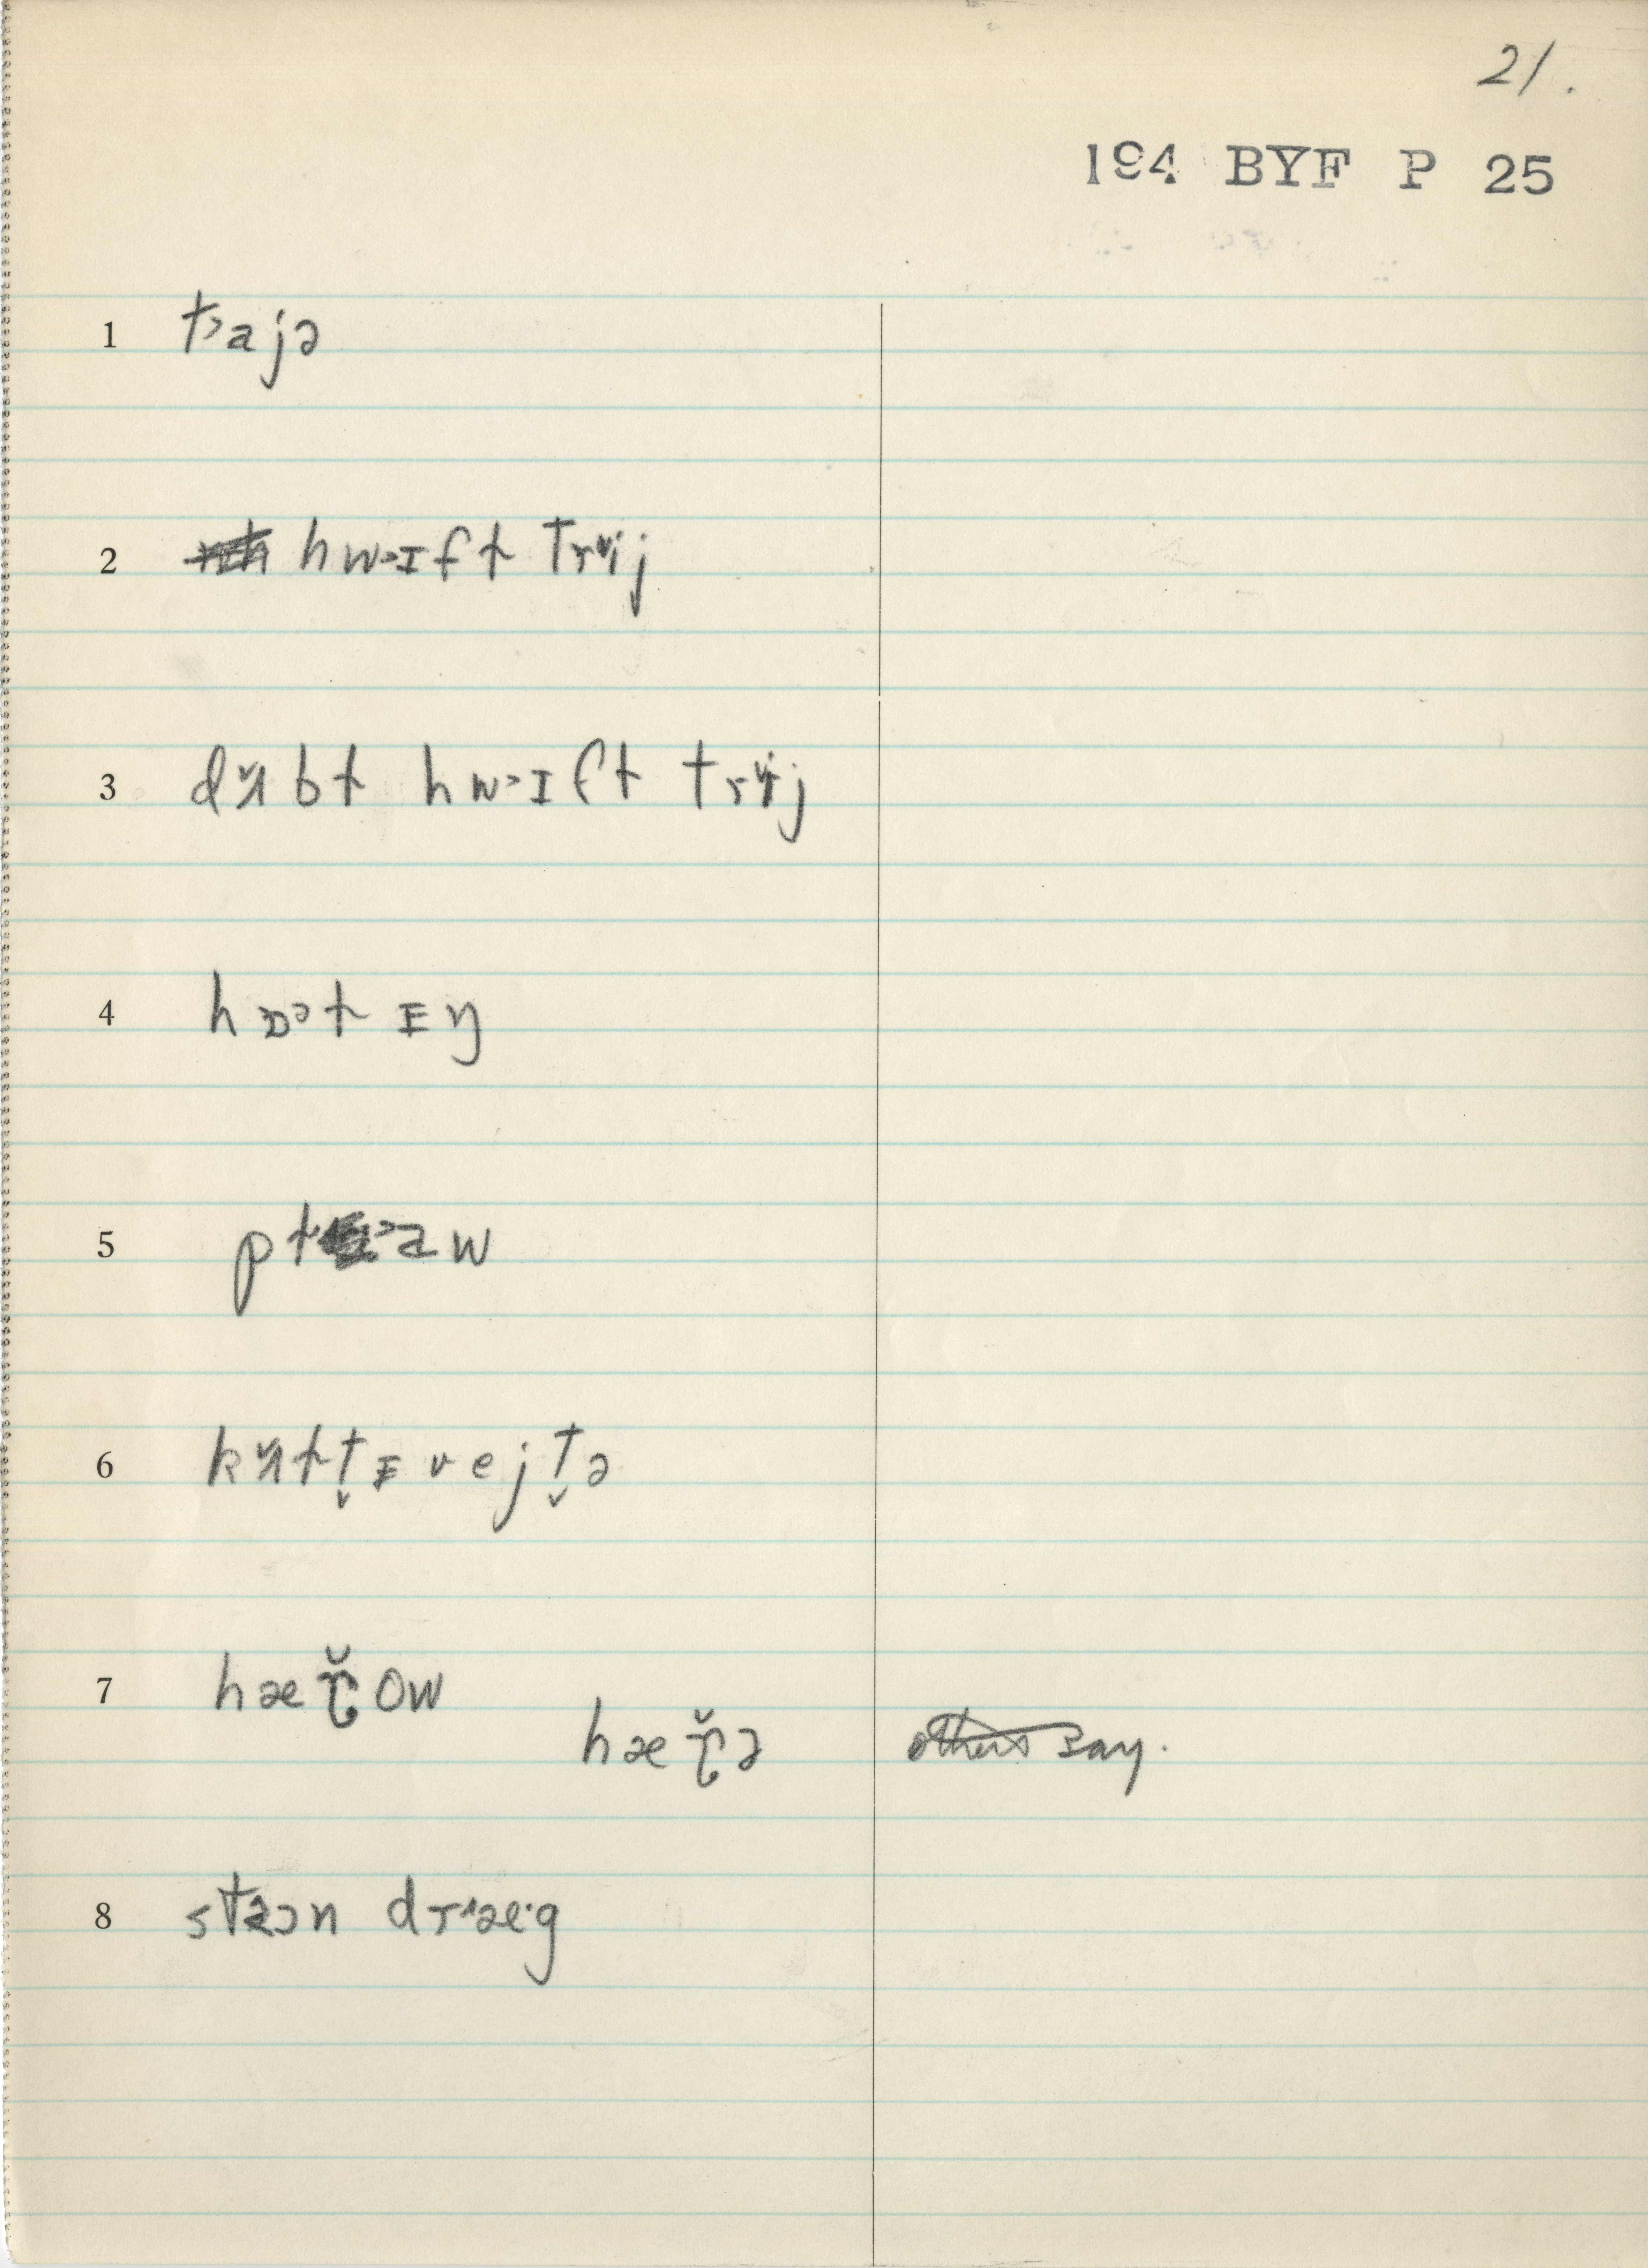 21.
194 BYF P 25
1 t˃ajə
2 hw˃ɪft trɨ̆j
3 dʌ̆bt hw˃ɪft trɨ̆j
4 hɒ˃t ɪŋ
5 pt˃aw
6 kʌ̆tt̬ɪvejt̬ə
7 hæɽ̆ow
hæɽ̆ə others say.
8 stɔn dr˄æ·g